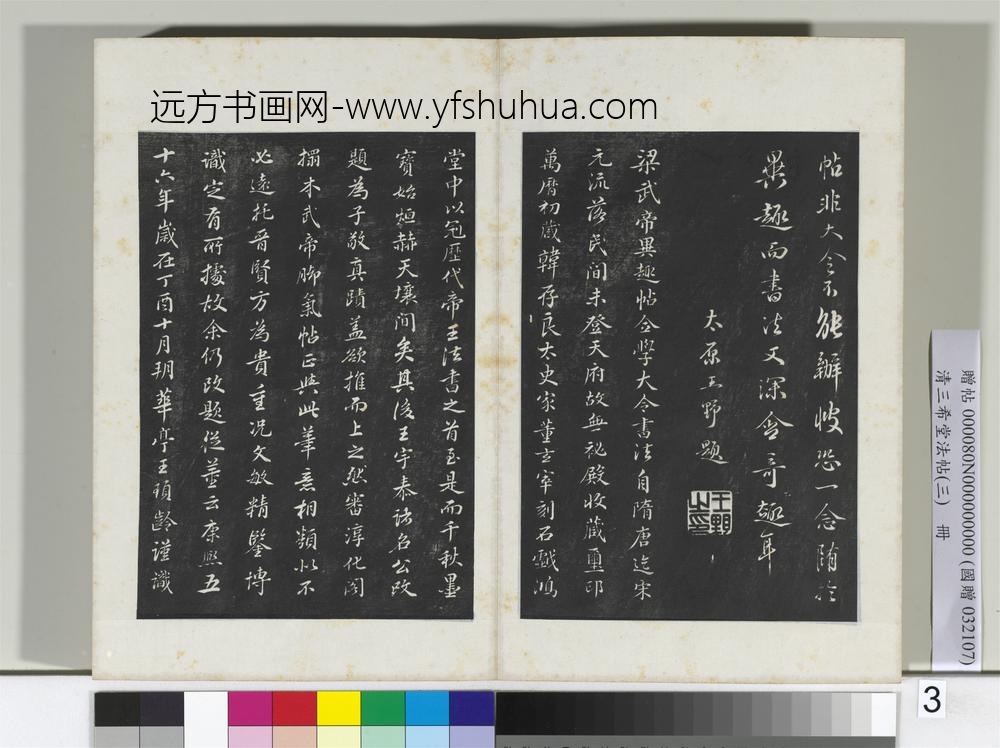 远方书画网-www.yfshuhua.com
帖非大令不能辦似恐一念随於
異趣而書法又深含奇趣耳
太原王野題
王野之印
梁武帝異趣帖全學大令書法自隋唐迄宋
元流落民間未登天府故無祕殿收藏璽印
萬曆初藏韓存良太史家董玄宰刻石戲鴻
堂中以冠歷代帝王法書之首至是而千秋墨
寶始烜赫天壤間矣其後王宇泰諸名公改
題為子敬真蹟蓋欲推而上之然審淳化閣
搨本武帝腳氣帖正與此筆意相類似不
必遠托晉賢方為貴重況文敏精鑒博
識定有所據故余仍改題從董云康熙五
十六年歲在丁酉十月朔華亭王頊齡謹識
贈帖 0000080N000000000 (國贈 032107)
清三希堂法帖(三) 冊
3